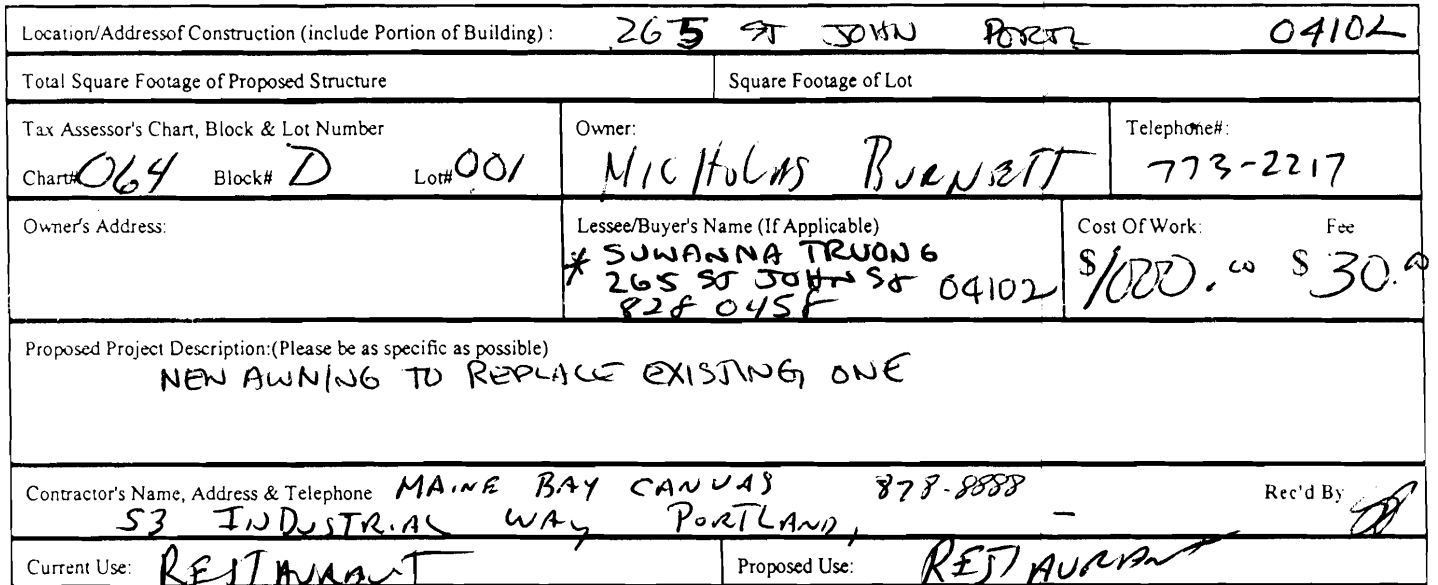 Location/Addressof Construction (include Portion of Building) : 265 ST JOHN PORTL 04102
Total Square Footage of Proposed Structure Square Footage of Lot
Tax Assessor's Chart, Block & Lot Number Owner: Telephone#:
Chart# 064 Block# D Lot# 001 NICHOLAS BURNETT 773-2217
Owner's Address: Lessee/Buyer's Name (If Applicable) Cost Of Work: Fee
* SUWANNA TRUONG
265 ST JOHN St 04102 $1000.00 $30.00
828 0458
Proposed Project Description:(Please be as specific as possible)
NEW AWNING TO REPLACE EXISTING ONE
Contractor's Name, Address & Telephone MAINE BAY CANVAS 878-8888 Rec'd By
53 INDUSTRIAL WAY PORTLAND, -
Current Use: RESTAURANT Proposed Use: RESTAURANT